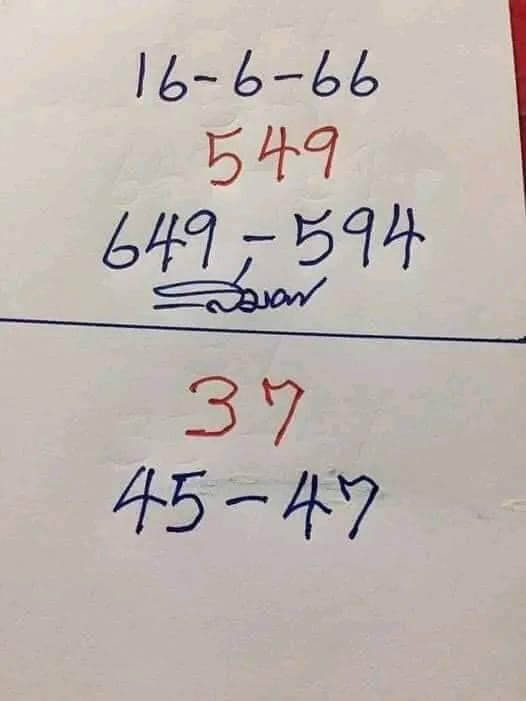 16-6-66
549
649-594
37
45-47